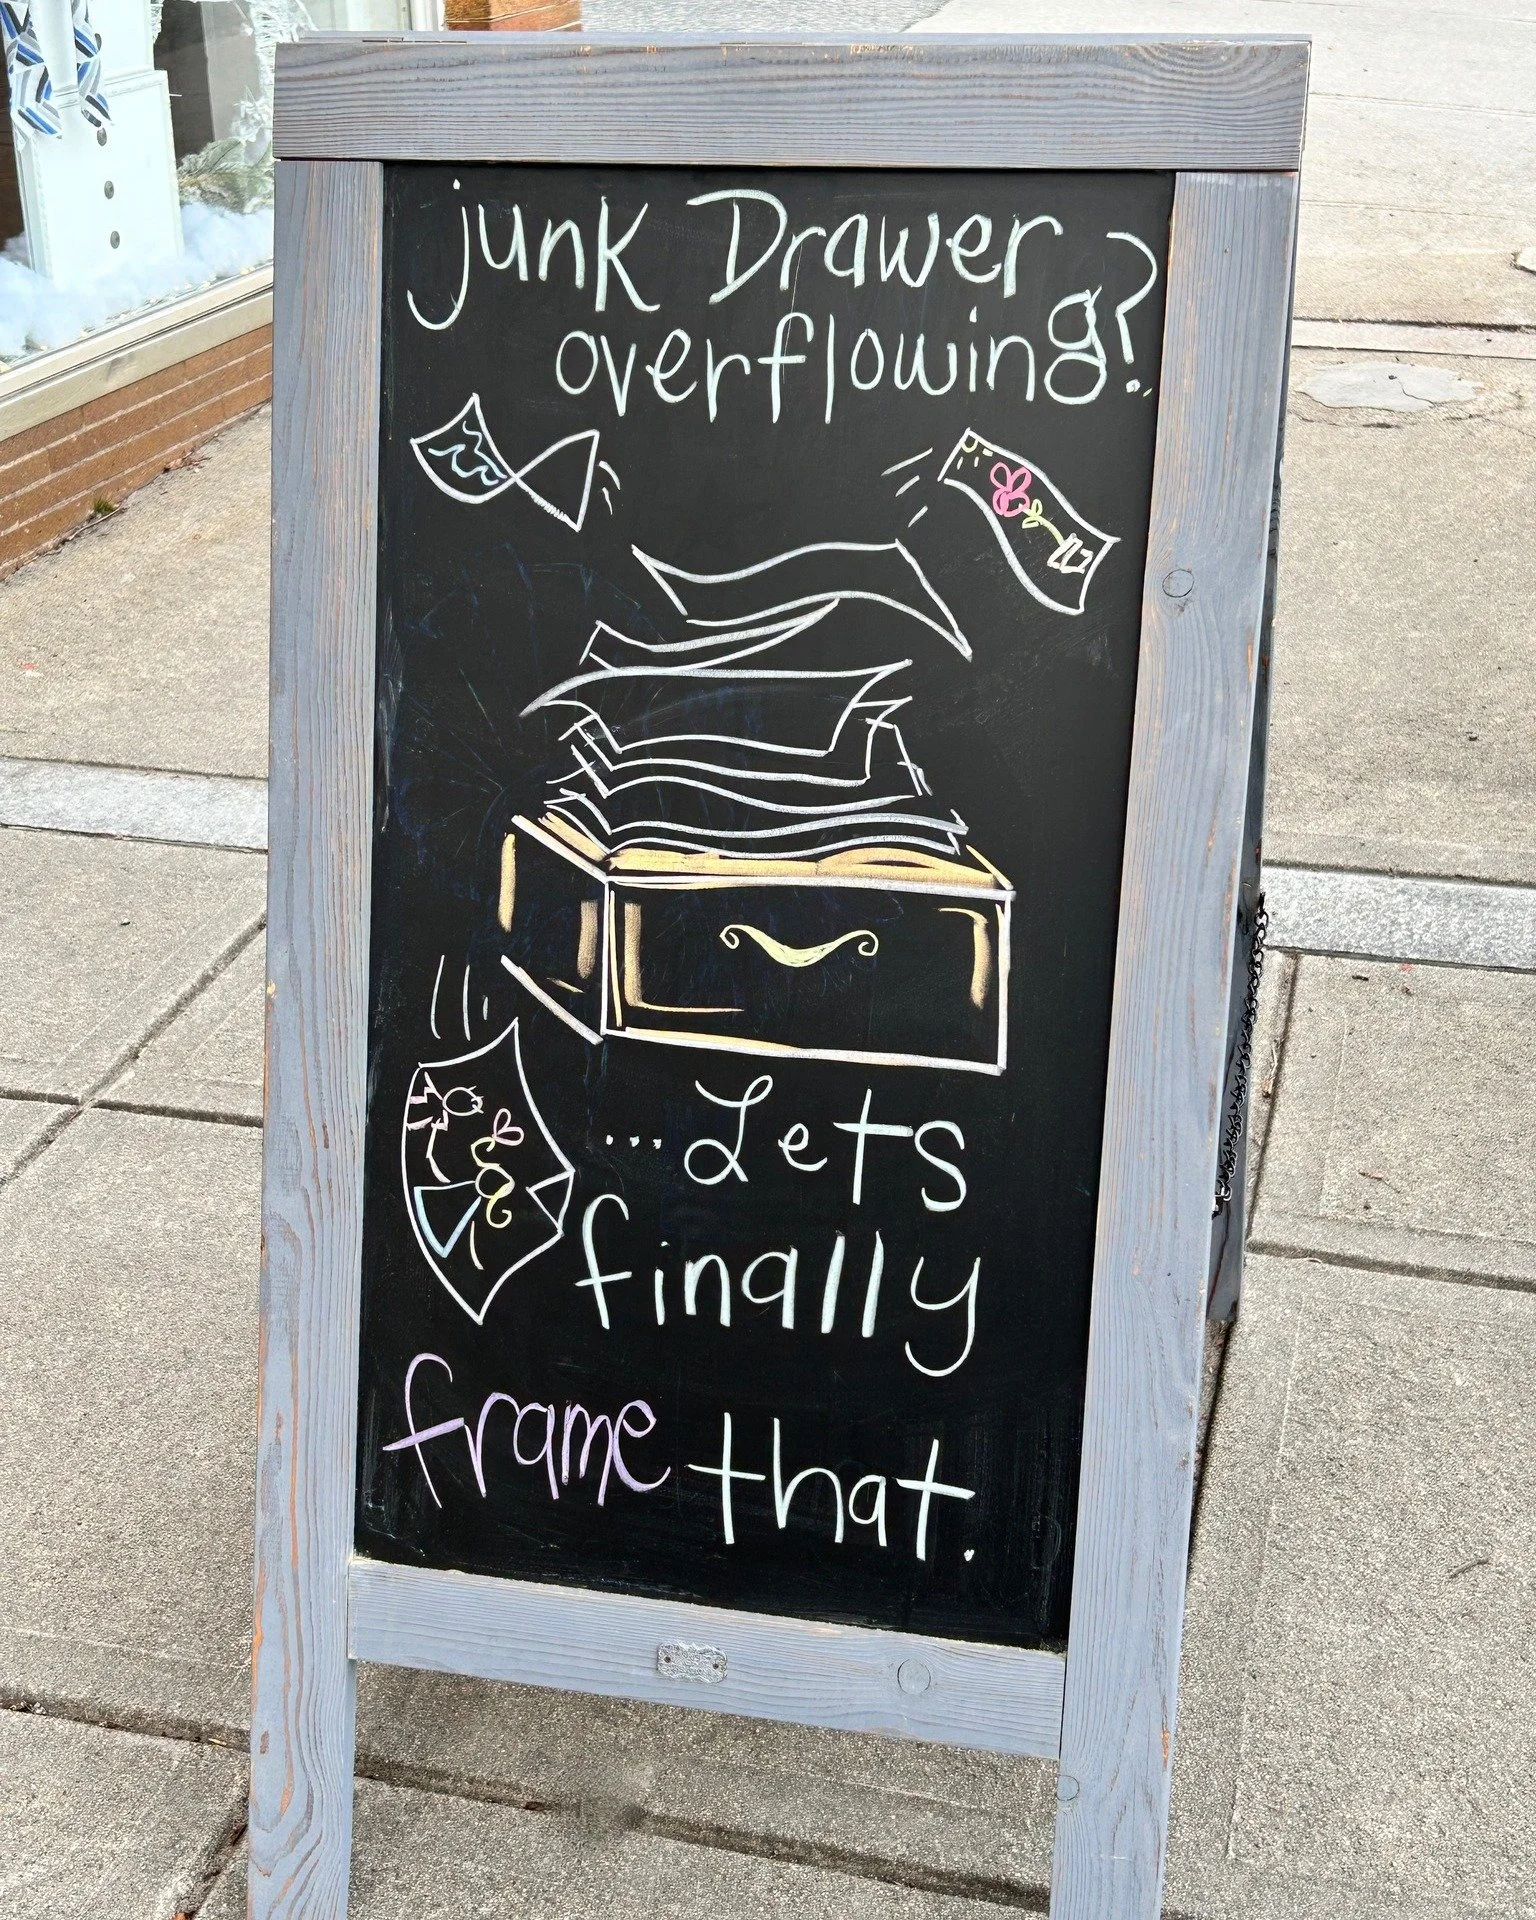 junk Drawer
overflowing?
...Lets
finally
frame that.